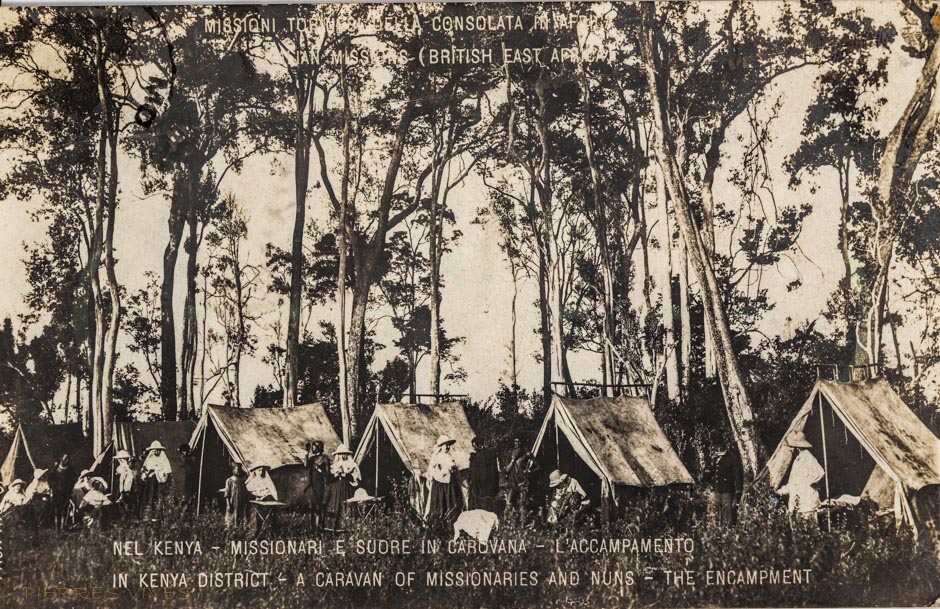 MISSIONI TORINESI DELLA CONSOLATA IN AFRICA
MISSIONS - (BRITISH EAST AFRICA)
NEL KENYA - MISSIONARI E SUORE IN CAROVANA - L'ACCAMPAMENTO
IN KENYA DISTRICT - A CARAVAN OF MISSIONARIES AND NUNS - THE ENCAMPMENT
PIERRES VIVES